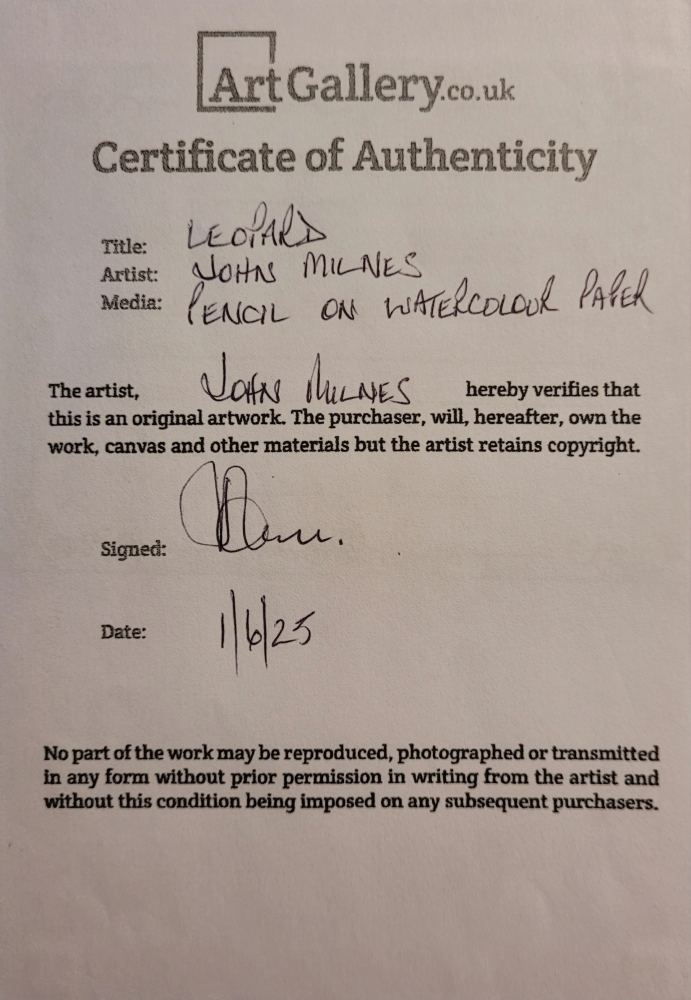 ArtGallery.co.uk
Certificate of Authenticity
Title: LEOPARD
Artist: JOHN MILNES
Media: PENCIL ON WATERCOLOUR PAPER
The artist, JOHN MILNES hereby verifies that
this is an original artwork. The purchaser, will, hereafter, own the
work, canvas and other materials but the artist retains copyright.
Signed:
Date: 1/6/25
No part of the work may be reproduced, photographed or transmitted
in any form without prior permission in writing from the artist and
without this condition being imposed on any subsequent purchasers.